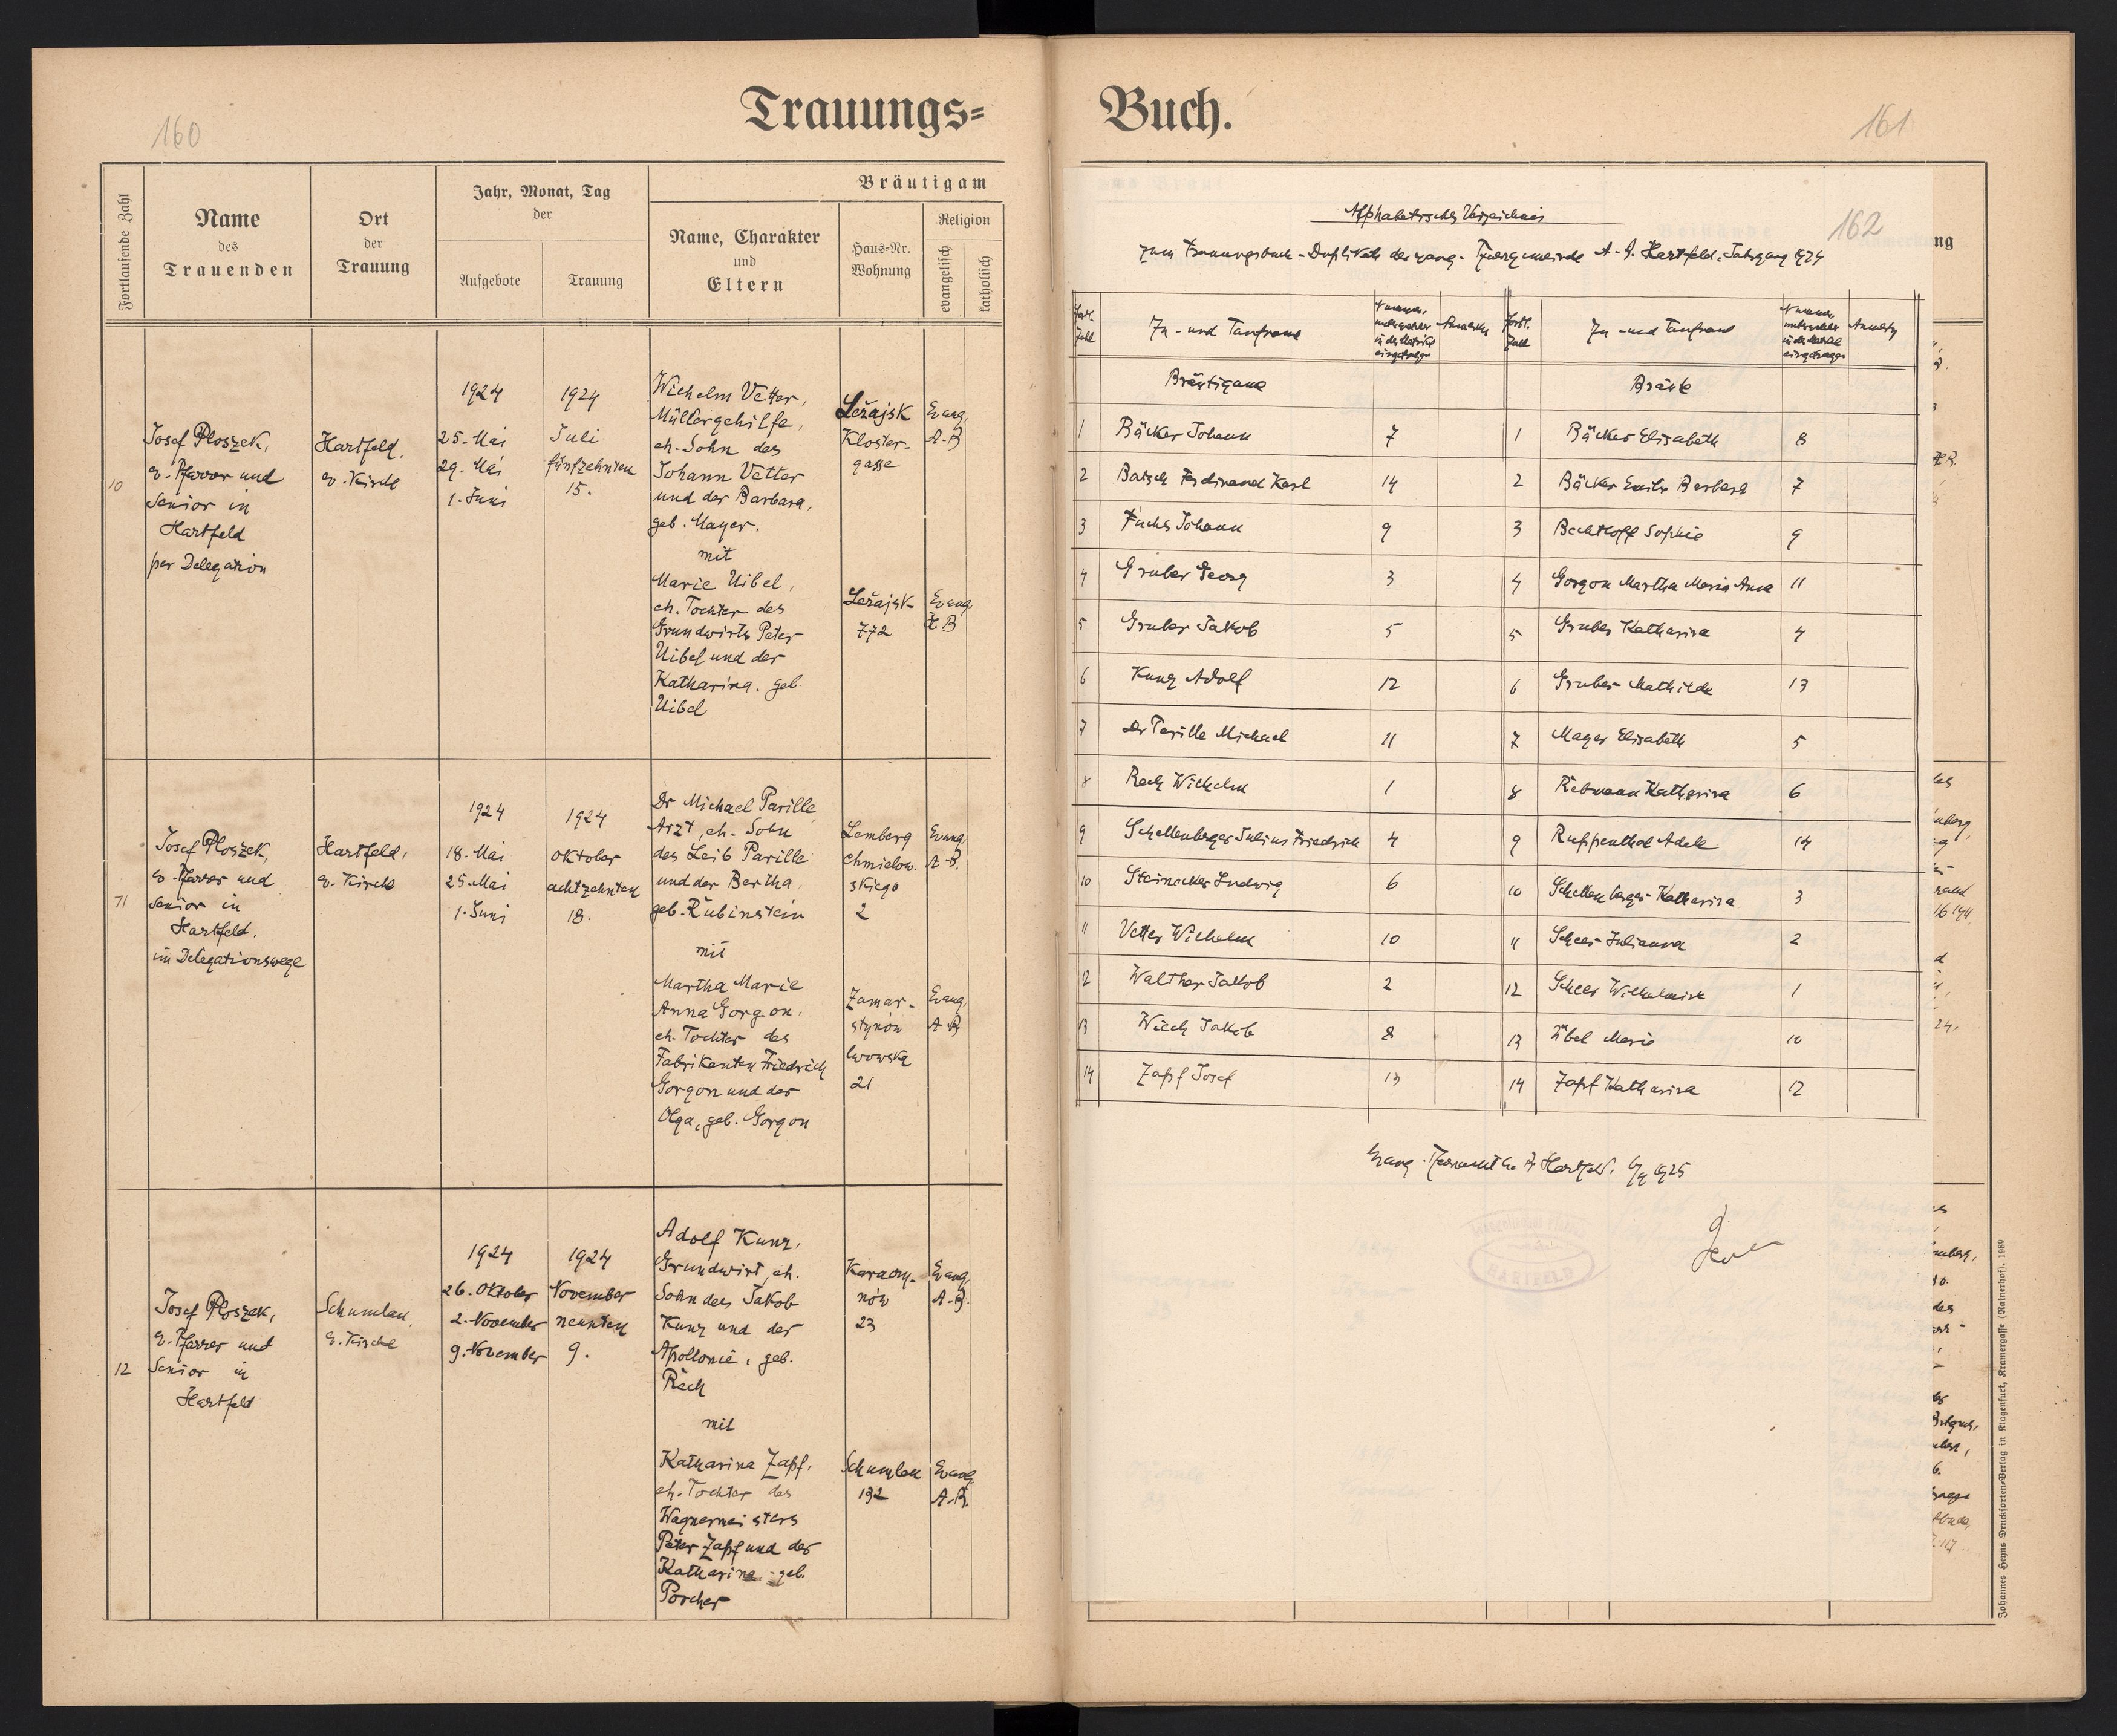 160
Trauungs=
Fortlaufende Zahl
Name
des
Trauenden
Ort
der
Trauung
Jahr, Monat, Tag
der
Aufgebote
Trauung
Bräutigam
Name, Charakter
und
Eltern
Haus=Nr.
Wohnung
Religion
evangelisch
katholisch
10
Josef Ploszek,
ev. Pfarrer und
Senior in
Hartfeld
per Delegation
Hartfeld,
ev. Kirche
1924
25. Mai
29. Mai
1. Juni
1924
Juli
fünfzehnten
15.
Wilhelm Vetter,
Müllergehilfe,
eh. Sohn des
Johann Vetter
und der Barbara,
geb. Mayer.
mit
Marie Uibel,
eh. Tochter des
Grundwirts Peter
Uibel und der
Katharina, geb.
Uibel
Ležajsk
Kloster-
gasse
Ležajsk
772
Evang.
A. B
Evang.
H B
11
Josef Ploszek,
ev. Pfarrer und
Senior in
Hartfeld.
im Delegationswege
Hartfeld,
ev. Kirche
1924
18. Mai
25. Mai
1. Juni
1924
Oktober
achtzehnten
18.
Dr Michael Parille
Arzt, eh. Sohn
des Leib Parille
und der Bertha,
geb. Rubinstein
mit
Martha Marie
Anna Gorgon,
eh. Tochter des
Fabrikanten Friedrich
Gorgon und der
Olga, geb. Gorgon
Lemberg
Chmielow-
skiego
2
Zamar-
stynów
lwowska
21
Evang.
A. B.
Evang.
A B
12
Josef Ploszek,
ev. Pfarrer und
Senior in
Hartfeld
Schumlau,
ev. Kirche
1924
26. Oktober
2. November
9. November
1924
November
neunten
9.
Adolf Kunz,
Grundwirt, eh.
Sohn des Jakob
Kunz und der
Apollonie, geb.
Rech
mit
Katharina Zapf,
eh. Tochter des
Wagnermeisters
Peter Zapf und der
Katharina, geb.
Porcher
Karaczy-
nów
23
Schumlau
132
Evang.
A. B.
Evang.
A. B.
Buch.
161
162
Alphabetisches Verzeichnis
zum Trauungsbuch-Duplikate der evang. Pfarrgemeinde A. B. Hartfeld, Jahrgang 1924
Fortl. Zahl
Zu- und Taufname
Nummer, unter welcher in der Matrik eingetragen
Anmerkg
Fortl. Zahl
Zu- und Taufname
Nummer, unter welcher in der Matrik eingetragen
Anmerkg
Bräutigame
Bräute
1 Bäcker Johann 7 1 Bäcker Elisabeth 8
2 Batsch Ferdinand Karl 14 2 Bäcker Emilie Barbara 7
3 Fuchs Johann 9 3 Bechtloff Sophie 9
4 Gruber Georg 3 4 Gorgon Martha Maria Anna 11
5 Gruber Jakob 5 5 Gruber Katharina 4
6 Kunz Adolf 12 6 Gruber Mathilde 13
7 Dr Parille Michael 11 7 Mayer Elisabeth 5
8 Rech Wilhelm 1 8 Rebmann Katharina 6
9 Schellenberger Julius Friedrich 4 9 Ruppenthal Adele 14
10 Steinacker Ludwig 6 10 Schellenberger Katharina 3
11 Vetter Wilhelm 10 11 Scheer Julianna 2
12 Walther Jakob 2 12 Scheer Wilhelmine 1
13 Wiech Jakob 8 13 Übel Marie 10
14 Zapf Josef 13 14 Zapf Katharina 12
Evang. Pfarramt A. B Hartfeld, 1925
HARTFELD
Johannes Heyns Drucksorten=Verlag in Klagenfurt, Kramergasse (Rainerhof). 1989